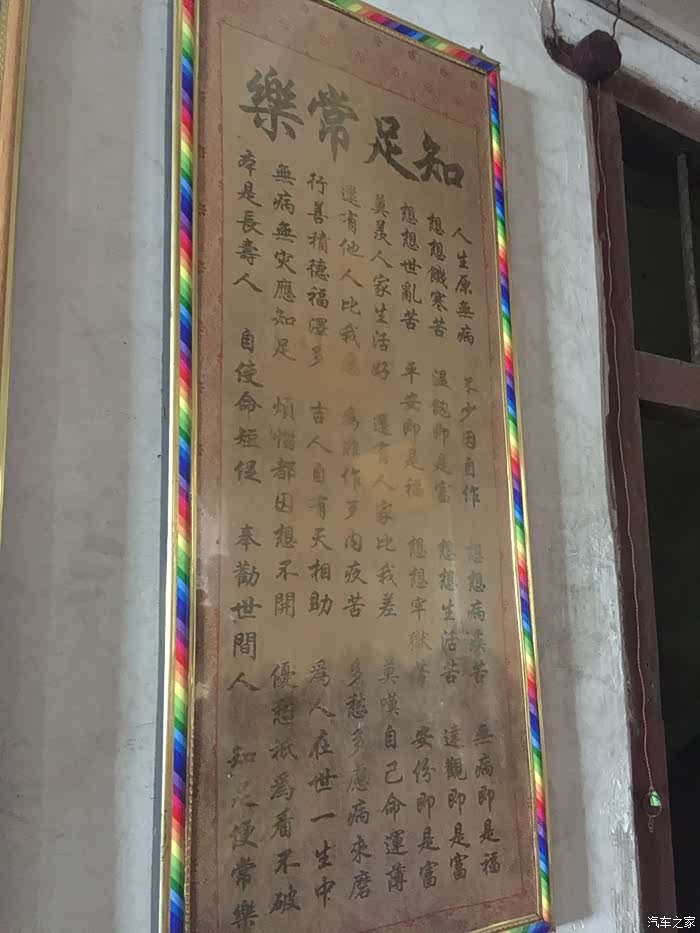 知足常樂
人生原無病 不少因自作 想想病苦 無病即是福
想想寒苦 溫飽即是富 想想生活苦 達觀即是富
想想世亂苦 平安即是福 想想牢獄苦 安份即是富
莫羨人家生活好 還有人家比我差 莫嘆自己命運薄
還有他人比我 為作歹内疚苦 多愁多慮病來磨
行善積德福澤多 吉人自有天相助 為人在世一生中
無病無災應知足 煩惱都因想不開 優愁祇為看不破
本是長壽人 自使命短促 奉勸世間人 知足便常樂
汽车之家